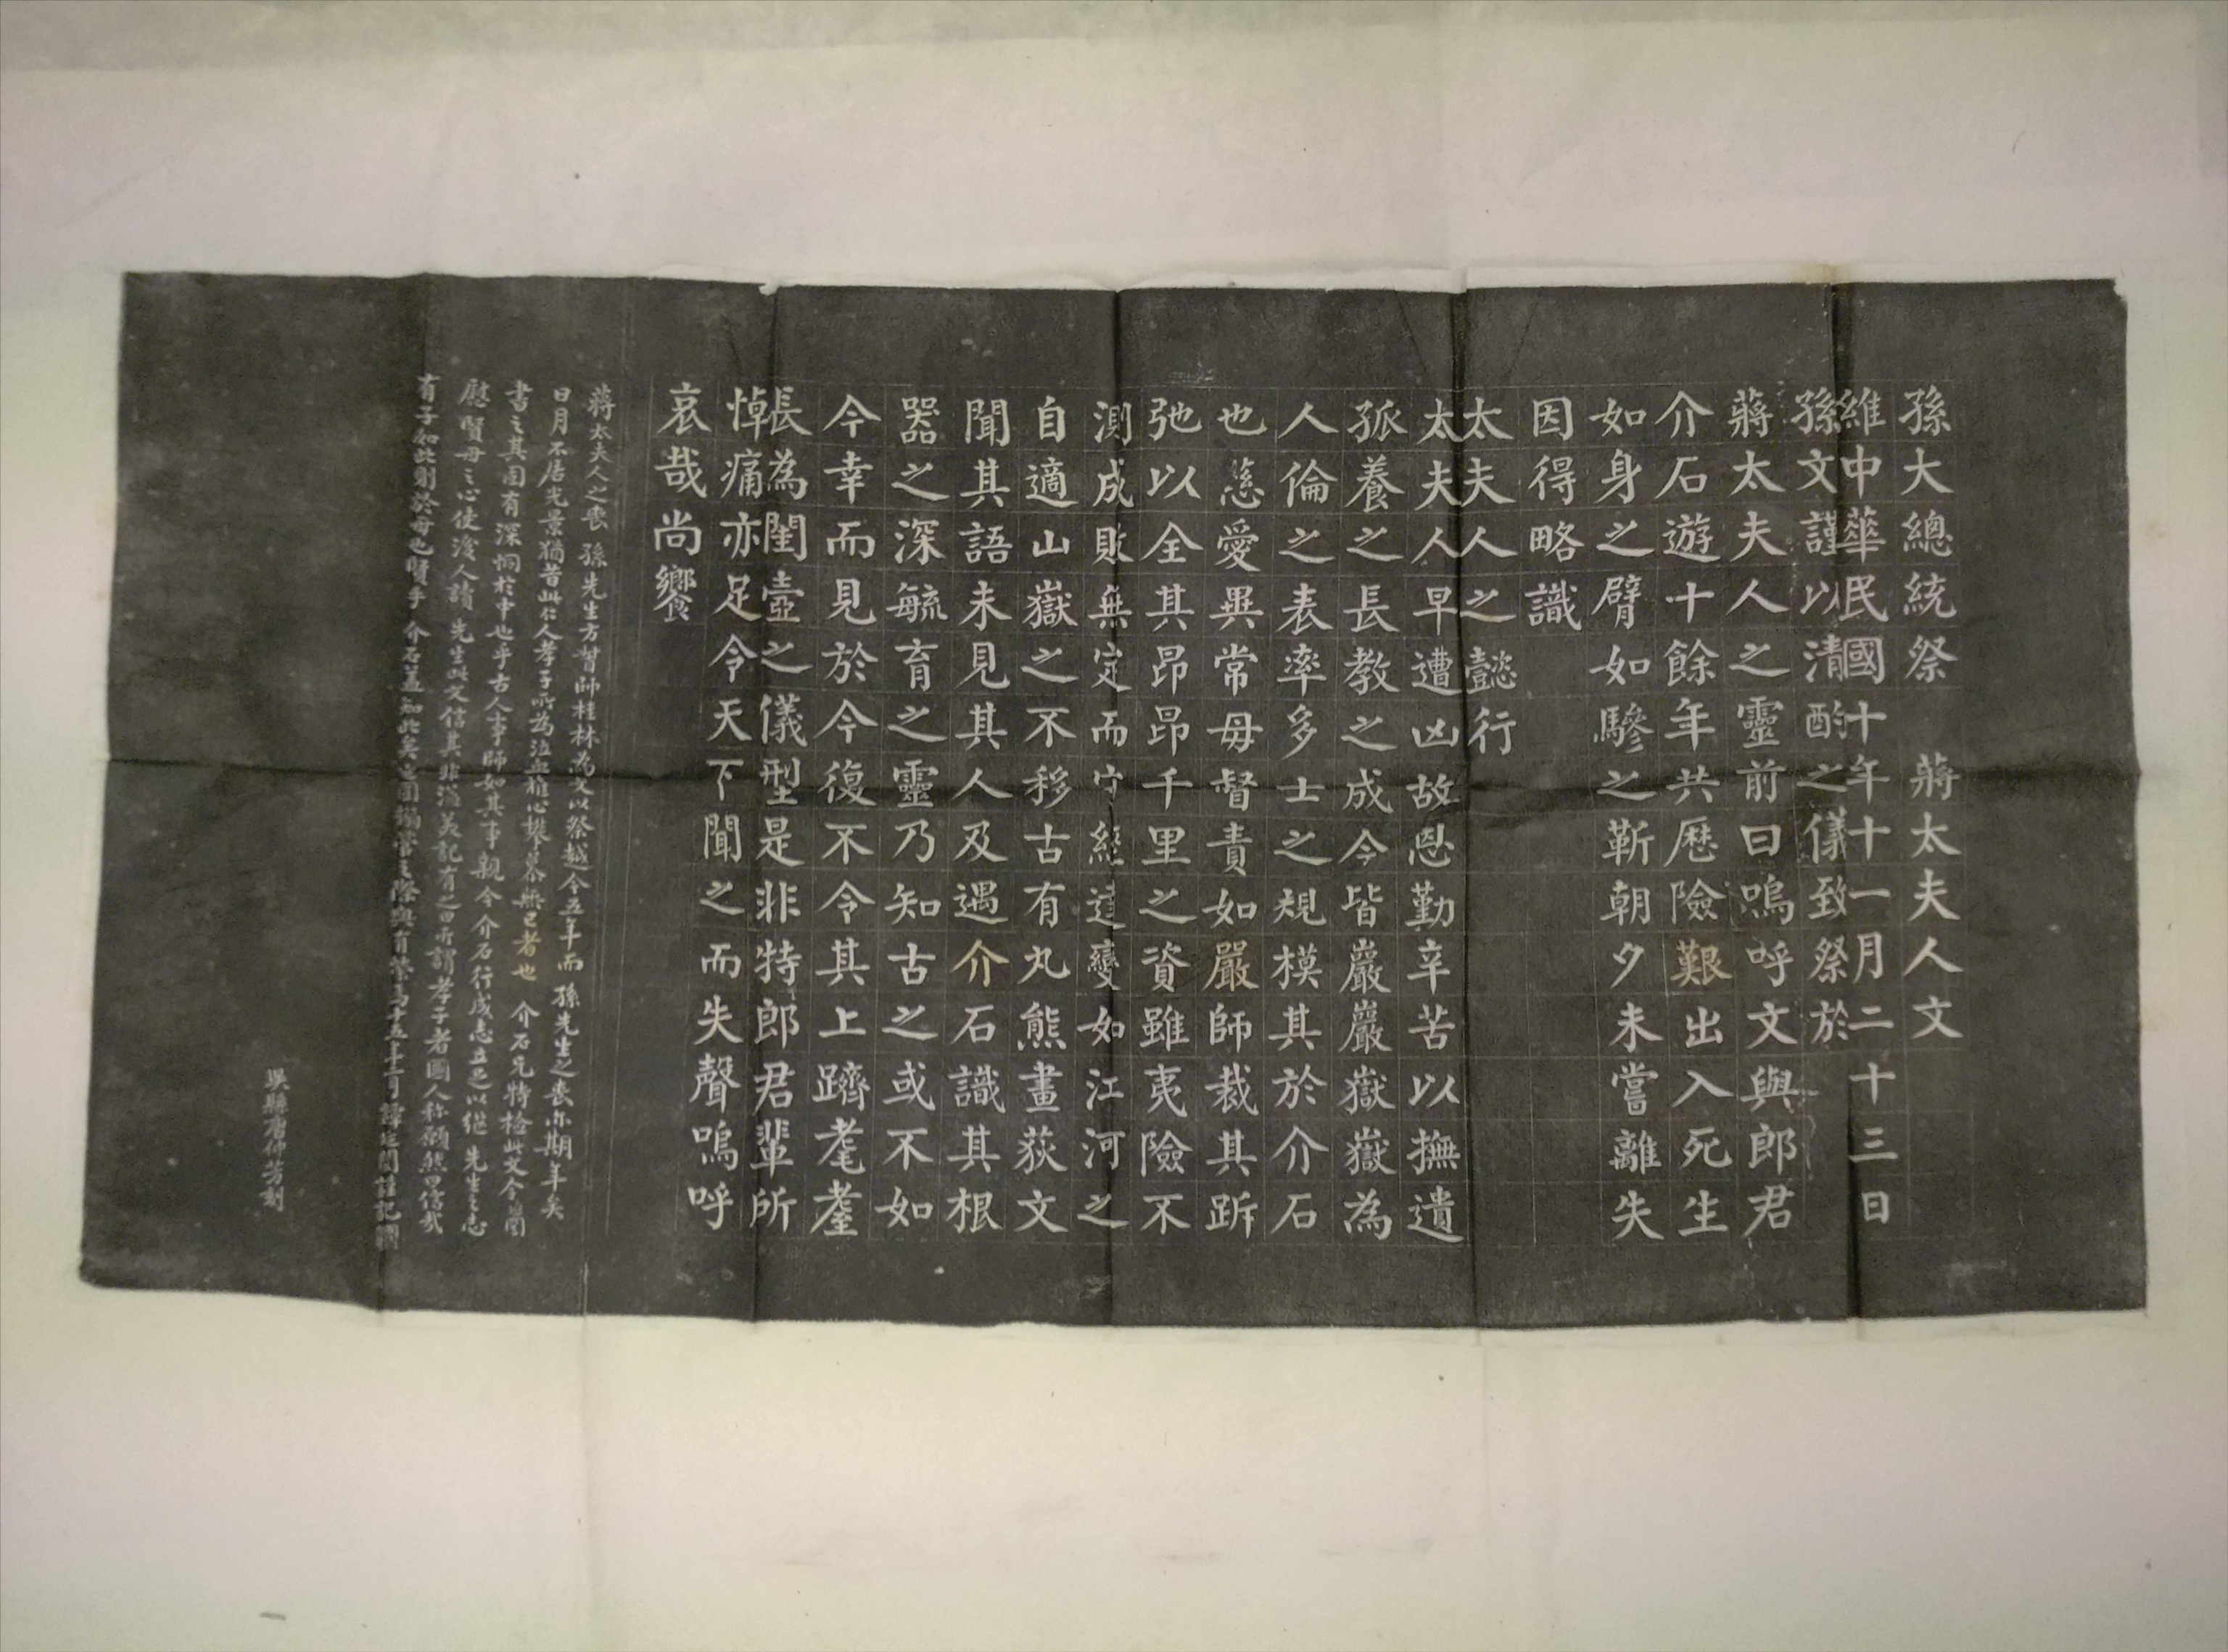 孫大總統祭　蔣太夫人文
維中華民國十年十一月二十三日
孫文謹以清酌之儀致祭於
蔣太夫人之靈前曰嗚呼文與郎君
介石遊十餘年共歷險艱出入死生
如身之臂如驂之靳朝夕未嘗離失
因得略識
太夫人之懿行
太夫人早遭凶故恩勤辛苦以撫遺
孤養之長教之成今皆嚴嚴嶽嶽為
人倫之表率多士之規模其於介石
也慈愛異常母督責如嚴師裁其跅
弛以全其昂昂千里之資雖夷險不
測成敗無定而守經達變如江河之
自適山嶽之不移古有丸熊畫荻文
聞其語未見其人及遇介石識其根
器之深毓育之靈乃知古之或不如
今幸而見於今復不令其上躋耄耋
長為閨壼之儀型是非特郎君輩所
悼痛亦足令天下聞之而失聲嗚呼
哀哉尚饗
蔣太夫人之喪　孫先生方督師桂林為文以祭越今五年而　孫先生之喪亦期年矣
日月不居光景猶昔此仁人孝子所為泣血椎心攀慕無已者也　介石兄特檢此文令闓
書之其固有深恫於中也乎古人事師如其事親今介石行成志立思以繼　先生之志
慰賢母之心使後人讀　先生此文信其非溢美記有之曰所謂孝子者國人稱願然曰信哉
有子如此則於母也賢乎　介石蓋知此矣
吳縣唐仲芳刻